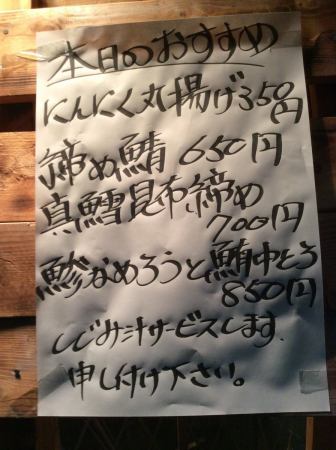 本日のおすすめ
にんにく丸揚げ350円
締め鯖 650円
真鱈昆布締め
700円
鯵なめろうと鮪中とろ
850円
しじみ汁サービスします.
申し付け下さい。